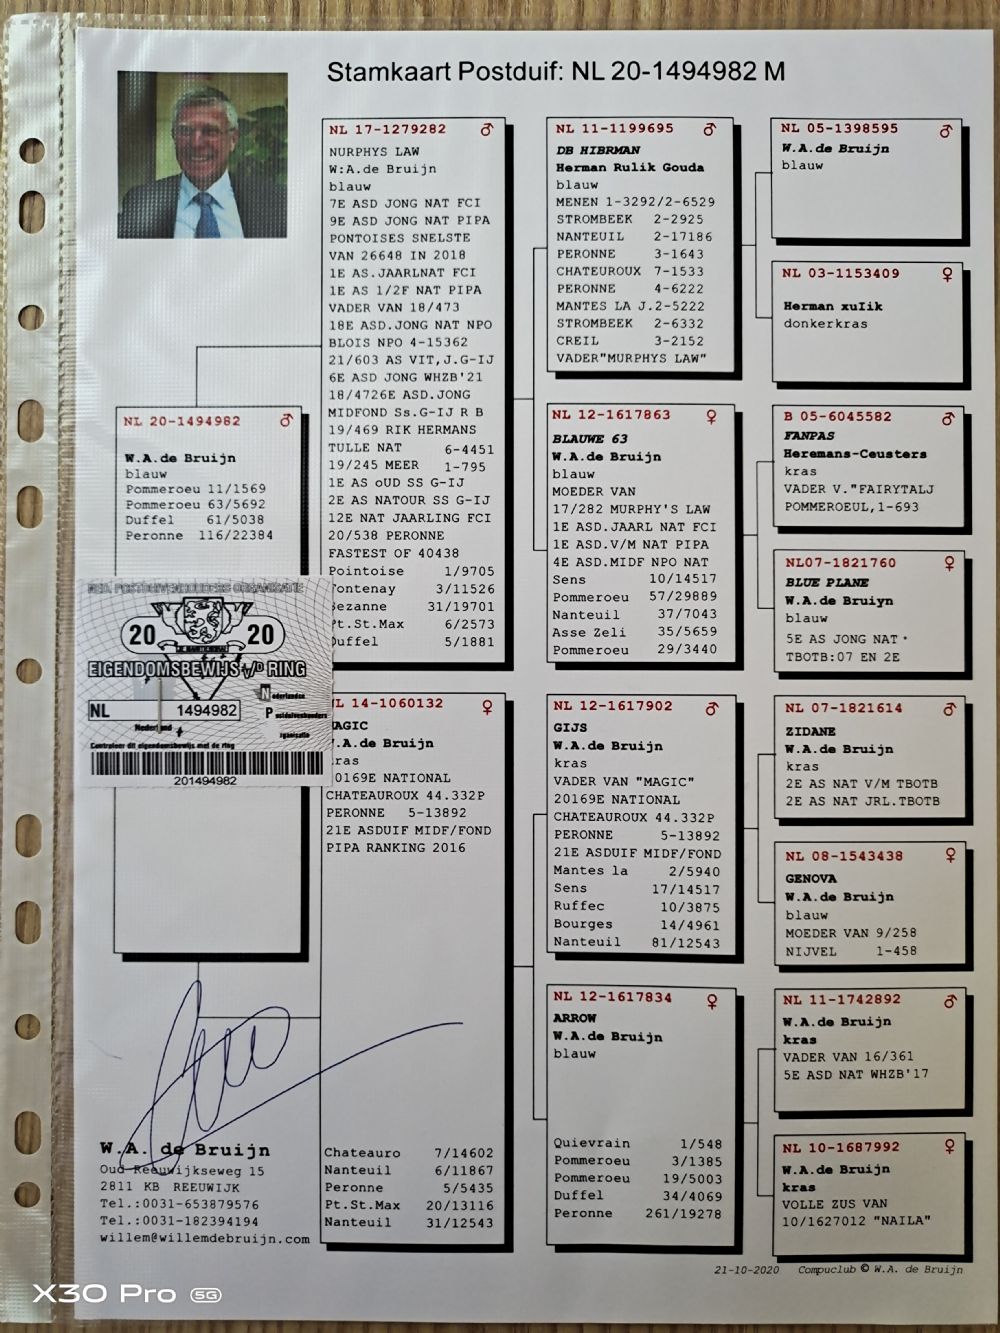 Stamkaart Postduif: NL 20-1494982 M
NL 20-1494982 ♂
W.A.de Bruijn
blauw
Pommeroeu 11/1569
Pommeroeu 63/5692
Duffel 61/5038
Peronne 116/22384
NED. POSTDUIVENHOUDERS ORGANISATIE
20 20
EIGENDOMSBEWIJS v/d RING
NL 1494982
Nederland
Nederlandse
Postduivenhouders
Organisatie
Controleer dit eigendomsbewijs met de ring
201494982
W.A. de Bruijn
Oud Reeuwijkseweg 15
2811 KB REEUWIJK
Tel.:0031-653879576
Tel.:0031-182394194
willem@willemdebruijn.com
NL 17-1279282 ♂
NURPHYS LAW
W:A.de Bruijn
blauw
7E ASD JONG NAT FCI
9E ASD JONG NAT PIPA
PONTOISES SNELSTE
VAN 26648 IN 2018
1E AS.JAARLNAT FCI
1E AS 1/2F NAT PIPA
VADER VAN 18/473
18E ASD.JONG NAT NPO
BLOIS NPO 4-15362
21/603 AS VIT,J.G-IJ
6E ASD JONG WHZB'21
18/4726E ASD.JONG
MIDFOND Ss.G-IJ R B
19/469 RIK HERMANS
TULLE NAT 6-4451
19/245 MEER 1-795
1E AS oUD SS G-IJ
2E AS NATOUR SS G-IJ
12E NAT JAARLING FCI
20/538 PERONNE
FASTEST OF 40438
Pointoise 1/9705
Fontenay 3/11526
Sezanne 31/19701
Pt.St.Max 6/2573
Duffel 5/1881
NL 14-1060132 ♀
MAGIC
W.A.de Bruijn
kras
20169E NATIONAL
CHATEAUROUX 44.332P
PERONNE 5-13892
21E ASDUIF MIDF/FOND
PIPA RANKING 2016
Chateauro 7/14602
Nanteuil 6/11867
Peronne 5/5435
Pt.St.Max 20/13116
Nanteuil 31/12543
NL 11-1199695 ♂
DB HIBRMAN
Herman Rulik Gouda
blauw
MENEN 1-3292/2-6529
STROMBEEK 2-2925
NANTEUIL 2-17186
PERONNE 3-1643
CHATEUROUX 7-1533
PERONNE 4-6222
MANTES LA J.2-5222
STROMBEEK 2-6332
CREIL 3-2152
VADER"MURPHYS LAW"
NL 12-1617863 ♀
BLAUWE 63
W.A.de Bruijn
blauw
MOEDER VAN
17/282 MURPHY'S LAW
1E ASD.JAARL NAT FCI
1E ASD.V/M NAT PIPA
4E ASD.MIDF NPO NAT
Sens 10/14517
Pommeroeu 57/29889
Nanteuil 37/7043
Asse Zeli 35/5659
Pommeroeu 29/3440
NL 12-1617902 ♂
GIJS
W.A.de Bruijn
kras
VADER VAN "MAGIC"
20169E NATIONAL
CHATEAUROUX 44.332P
PERONNE 5-13892
21E ASDUIF MIDF/FOND
Mantes la 2/5940
Sens 17/14517
Ruffec 10/3875
Bourges 14/4961
Nanteuil 81/12543
NL 12-1617834 ♀
ARROW
W.A.de Bruijn
blauw
Quievrain 1/548
Pommeroeu 3/1385
Pommeroeu 19/5003
Duffel 34/4069
Peronne 261/19278
NL 05-1398595 ♂
W.A.de Bruijn
blauw
NL 03-1153409 ♀
Herman xuIik
donkerkras
B 05-6045582 ♂
FANPAS
Heremans-Ceusters
kras
VADER V."FAIRYTALJ
POMMEROEUL,1-693
NL07-1821760 ♀
BLUE PLANE
W.A.de Bruiyn
blauw
5E AS JONG NAT
TBOTB:07 EN 2E
NL 07-1821614 ♂
ZIDANE
W.A.de Bruijn
kras
2E AS NAT V/M TBOTB
2E AS NAT JRL.TBOTB
NL 08-1543438 ♀
GENOVA
W.A.de Bruijn
blauw
MOEDER VAN 9/258
NIJVEL 1-458
NL 11-1742892 ♂
W.A.de Bruijn
kras
VADER VAN 16/361
5E ASD NAT WHZB'17
NL 10-1687992 ♀
W.A.de Bruijn
kras
VOLLE ZUS VAN
10/1627012 "NAILA"
21-10-2020 Compuclub © W.A. de Bruijn
X30 Pro 5G